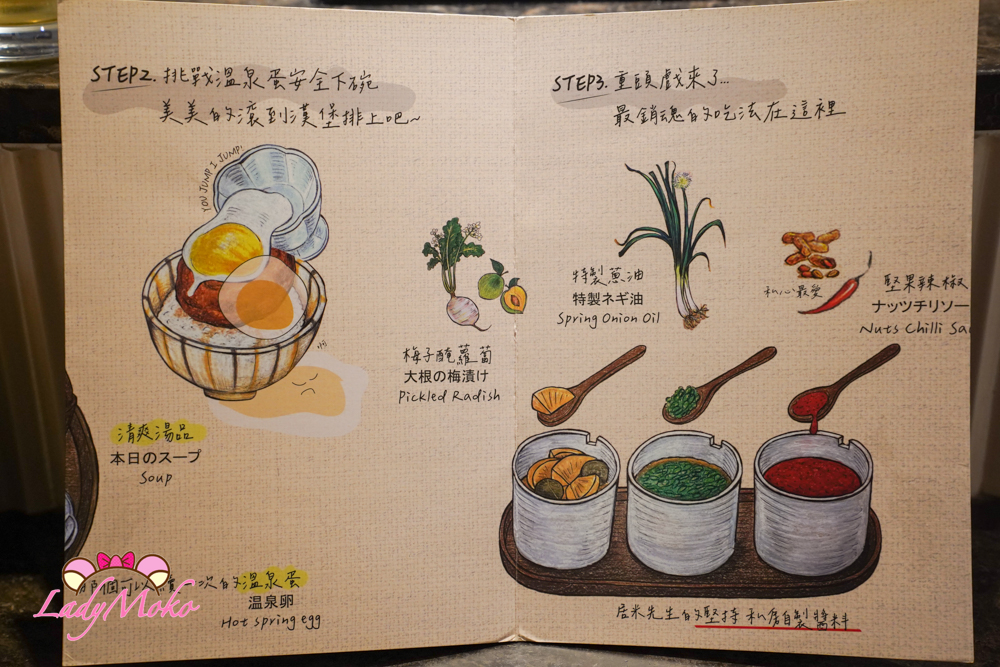 STEP2. 挑戰溫泉蛋安全下碗
美美的滾到漢堡排上吧~
YOU JUMP I JUMP!
梅子醃蘿蔔
大根の梅漬け
Pickled Radish
清爽湯品
本日のスープ
Soup
個可以續一次的溫泉蛋
温泉卵
Hot spring egg
LadyMoko
STEP3. 重頭戲來了...
最銷魂的吃法在這裡
特製蔥油
特製ネギ油
Spring Onion Oil
私心最愛
堅果辣椒
ナッツチリソー
Nuts Chilli Sau
居米先生的堅持 私房自製醬料